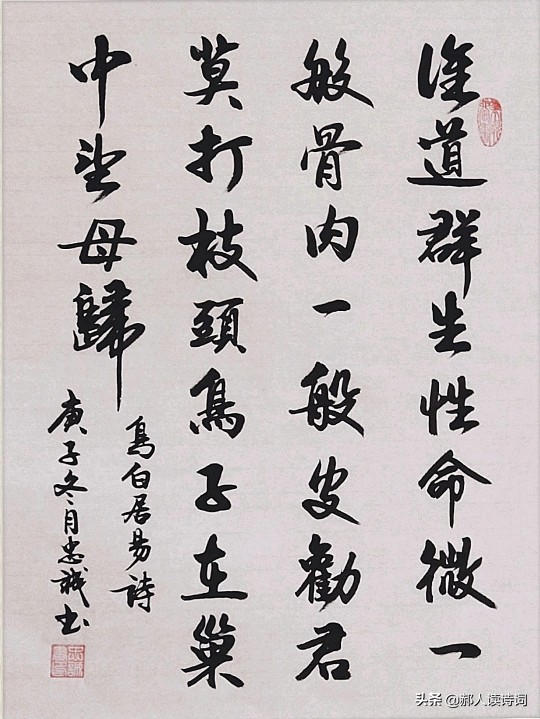 誰道群生性命微一
般骨肉一般皮勸君
莫打枝頭鳥子在巢
中望母歸
鳥白居易詩
庚子冬月忠誠书
头条 @郝人读诗词